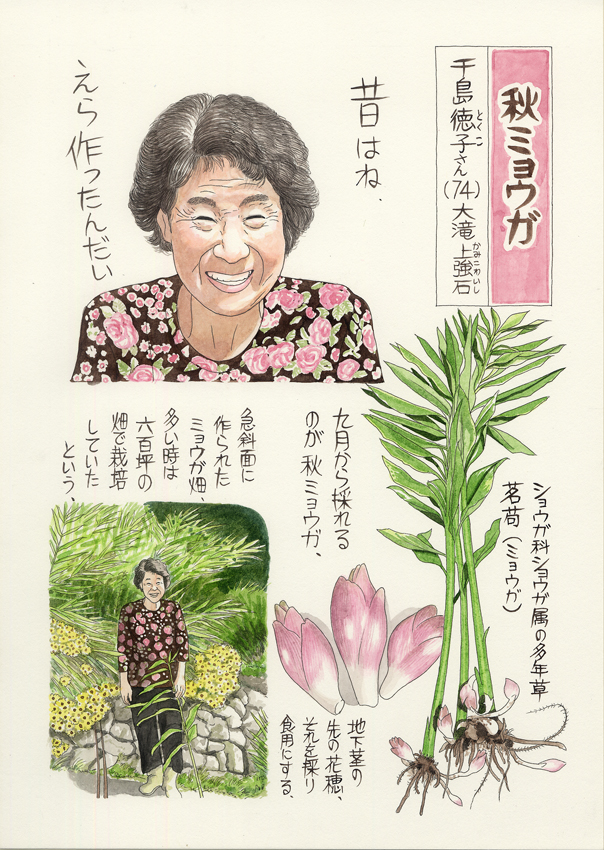 秋ミョウガ
千島徳子さん(74)大滝上強石
とくこ
かみこわいし
昔はね、
えら作ったんだい
ショウガ科ショウガ属の多年草
茗荷(ミョウガ)
九月から採れる
のが秋ミョウガ、
急斜面に
作られた
ミョウガ畑、
多い時は
六百坪の
畑で栽培
していた
という、
地下茎の
先の花穂、
それを採り
食用にする、